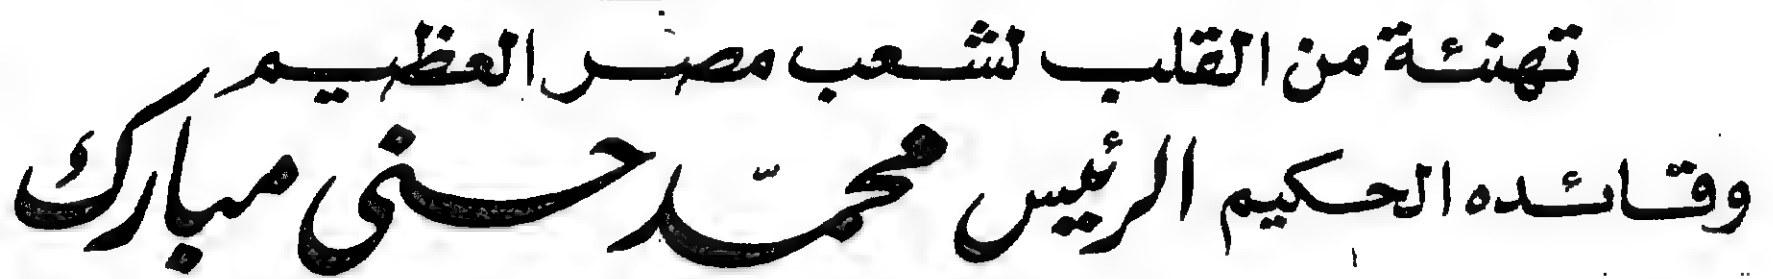 تهنئة من القلب لشعب مصر العظيم
وقائده الحكيم الرئيس محمّد حسنى مبارك